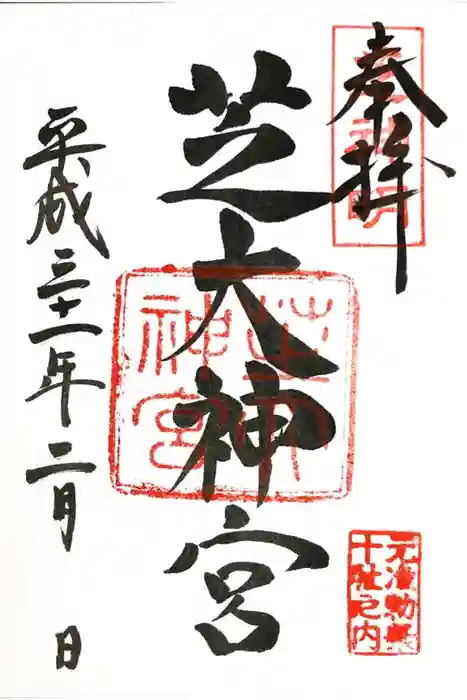 奉拝
芝大神宮
平成三十一年二月 日
芝大
神宮
元准勅祭
十社之内